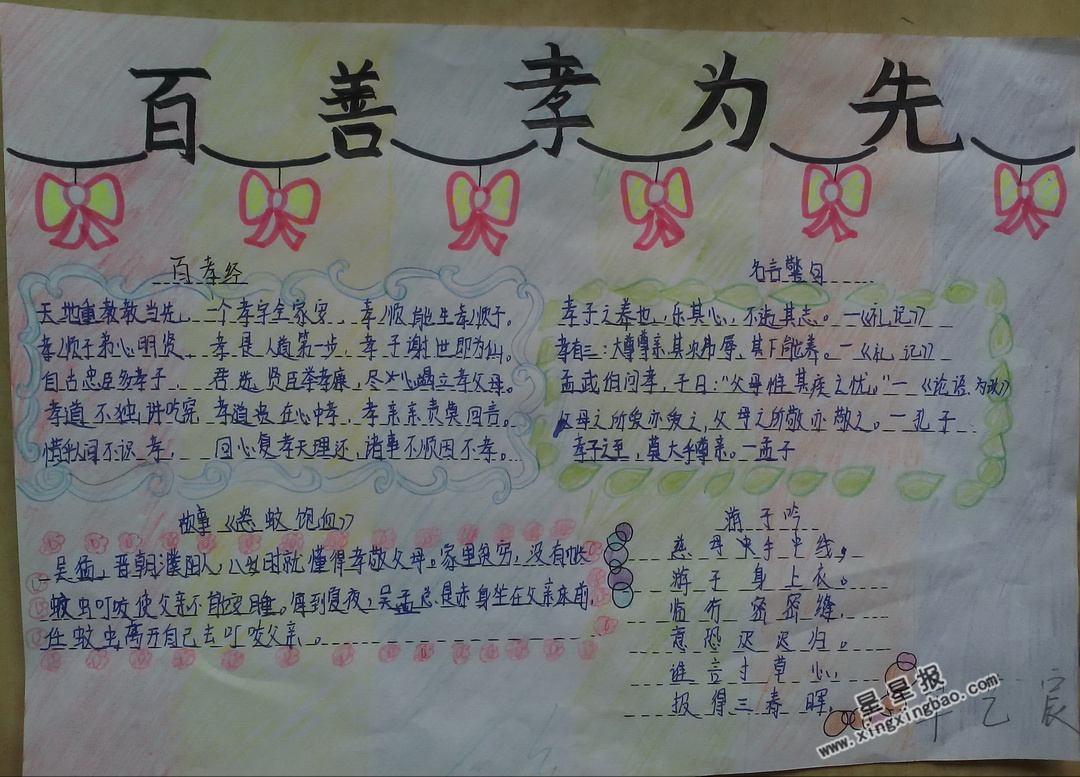 百善孝为先
百孝经
天地重教孝当先，一个孝字全家安，孝顺能生孝顺子。
孝顺子弟心明贤，孝是人道第一步，孝子谢世即为仙。
自古忠臣多孝子，君选贤臣举孝廉，尽心竭立孝父母。
孝道不独讲吃穿，孝道贵在心中孝，孝亲亲责莫回言。
惜乎人间不识孝，回心复孝天理还，诸事不顺因不孝。
名言警句
孝子之养也，乐其心，不违其志。—《礼记》
孝有三：大尊尊亲，其次弗辱，其下能养。—《礼记》
孟武伯问孝，子曰：“父母惟其疾之忧。”—《论语·为政》
父母之所爱亦爱之，父母之所敬亦敬之。—孔子
孝子之至，莫大乎尊亲。—孟子
故事《恣蚊饱血》
吴猛，晋朝濮阳人，八岁时就懂得孝敬父母。家里贫穷，没有
蚊虫叮咬使父亲不能安睡。每到夏夜，吴孟总是赤身坐在父亲床前，
任蚊虫离开自己去叮咬父亲。
游子吟
慈母手中线，
游子身上衣。
临行密密缝，
意恐迟迟归。
谁言寸草心，
报得三春晖。
乙宸
星星报
www.xingxingbao.com